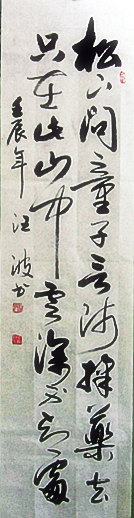 松下问童子言师採药去
只在此山中云深不知处
壬辰年 汪波书